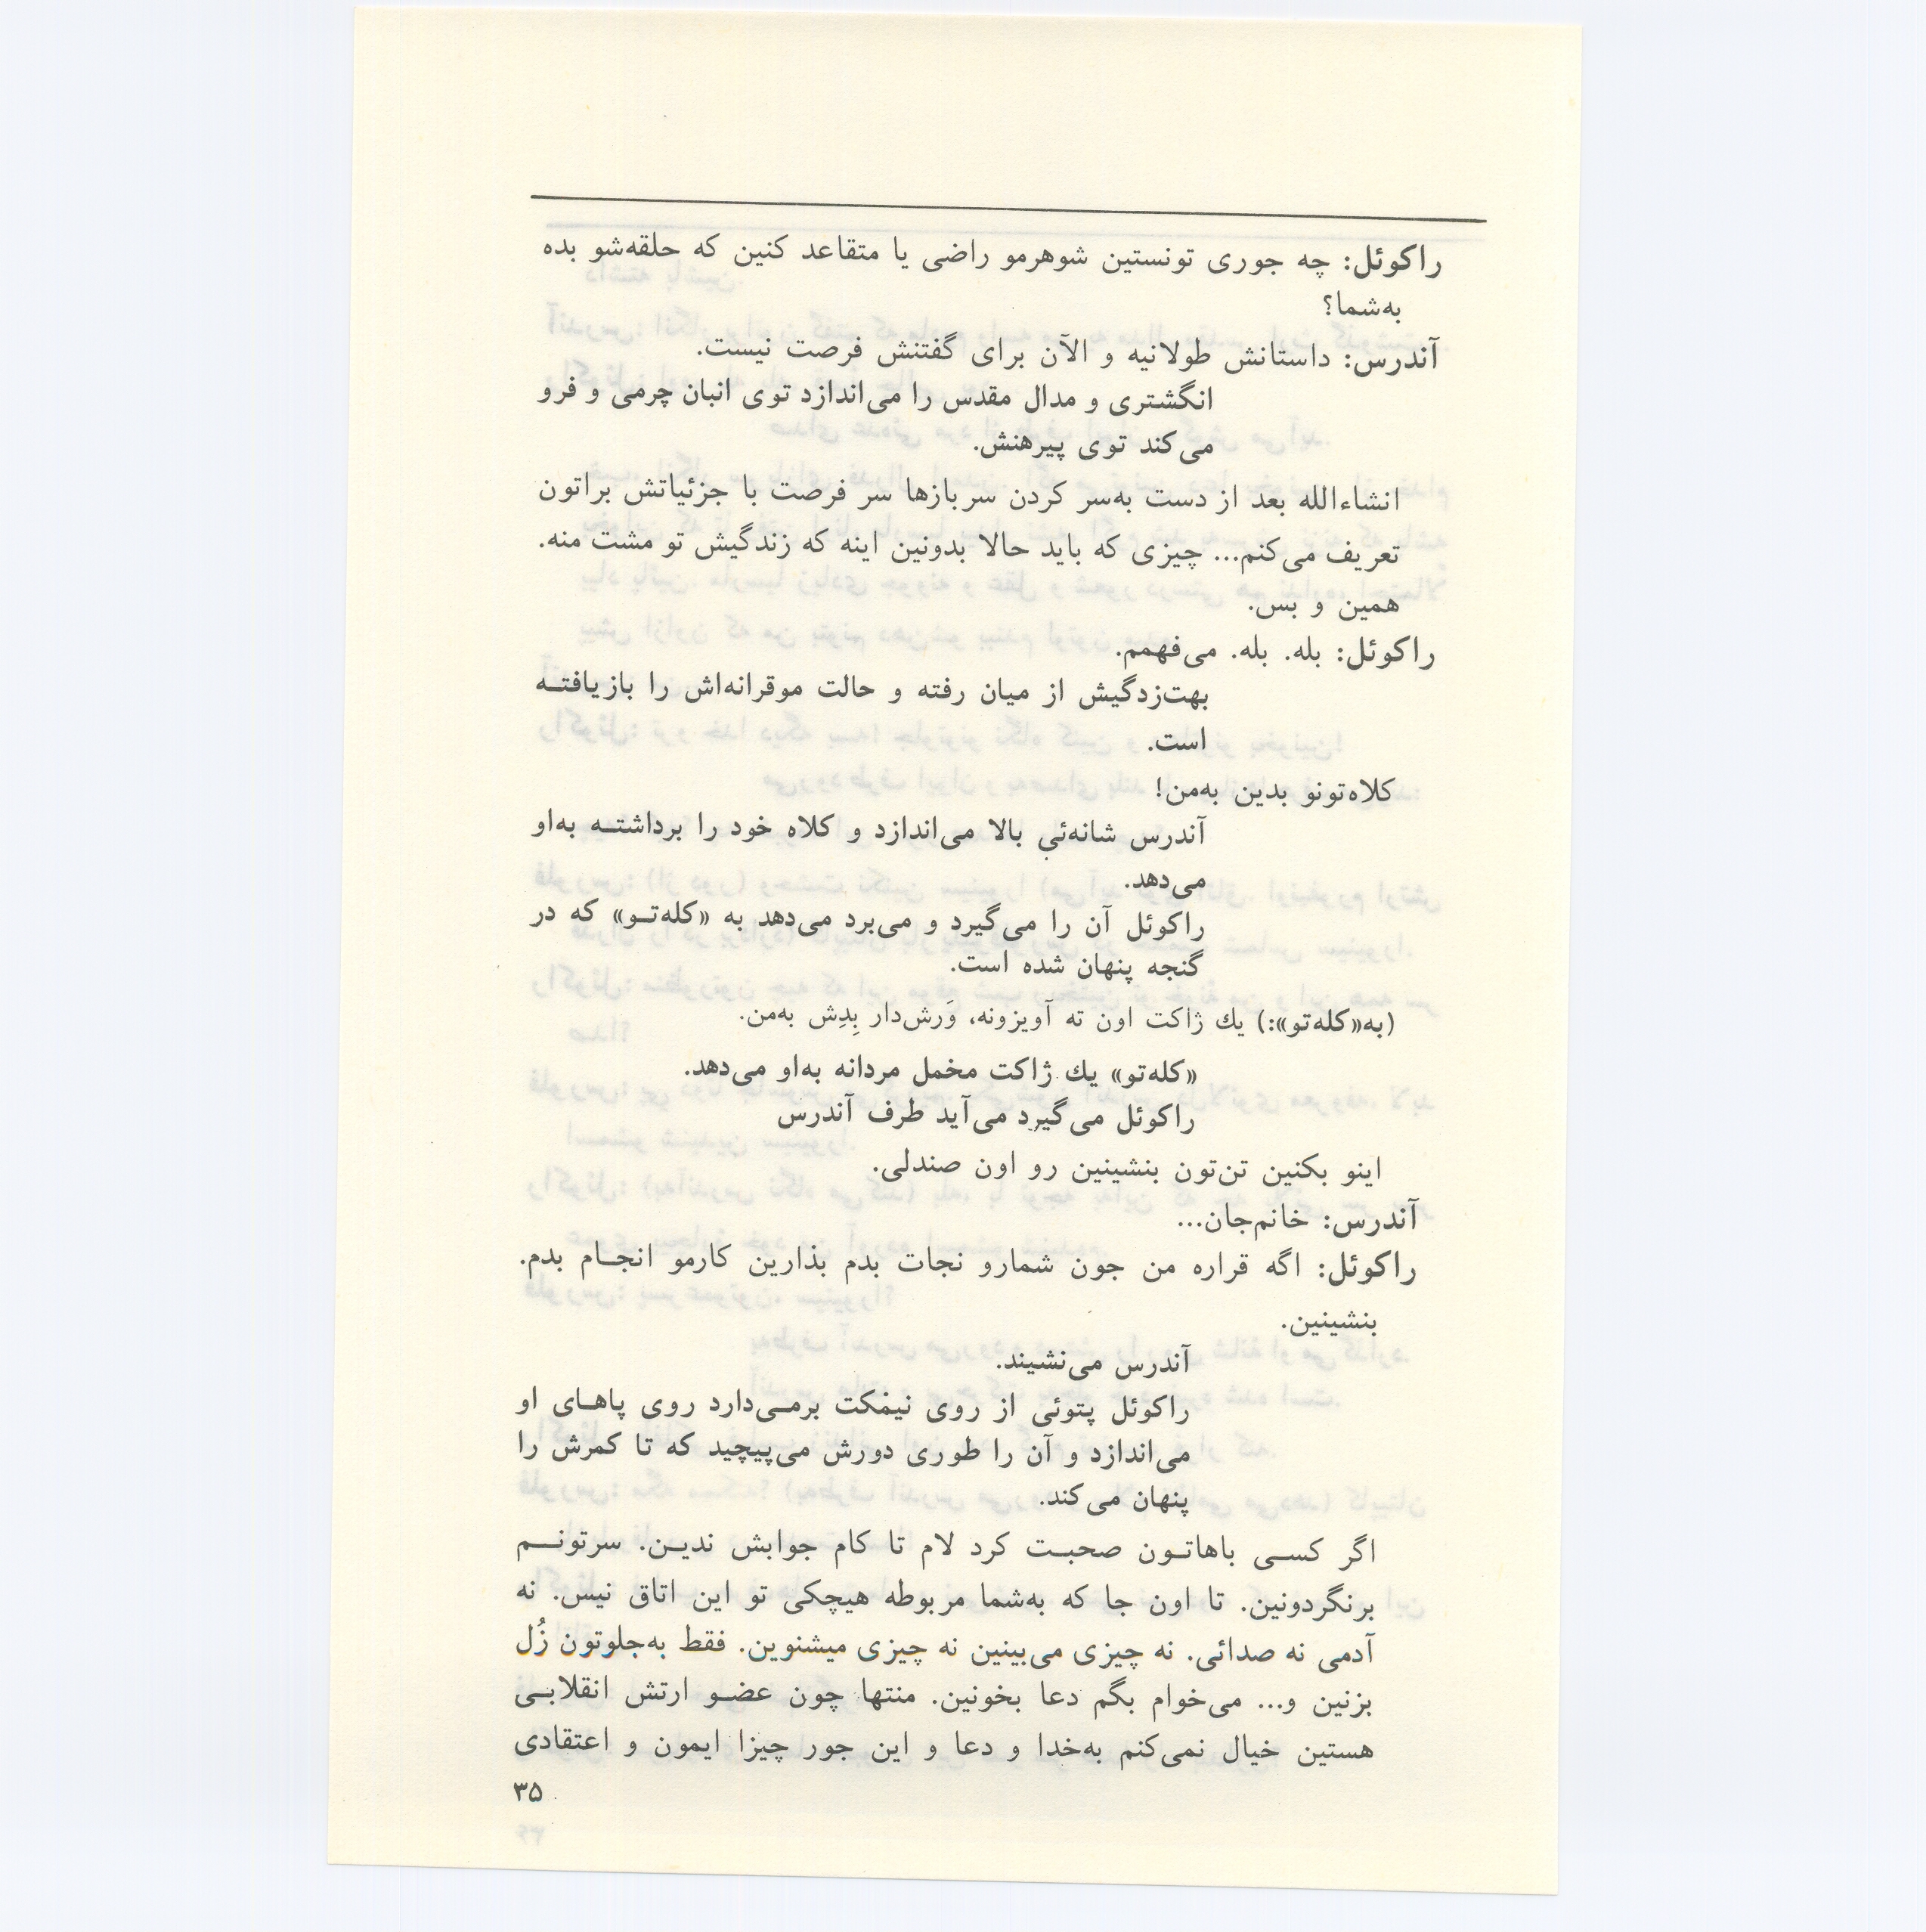 راکوئل: چه جوری تونستین شوهرمو راضی یا متقاعد کنین که حلقه‌شو بده
به‌شما؟
آندرس: داستانش طولانیه و الآن برای گفتنش فرصت نیست.
انگشتری و مدال مقدس را می‌اندازد توی انبان چرمی و فرو
می‌کند توی پیرهنش.
انشاءالله بعد از دست به‌سر کردن سربازها سر فرصت با جزئیاتش براتون
تعریف می‌کنم... چیزی که باید حالا بدونین اینه که زندگیش تو مشت منه.
همین و بس.
راکوئل: بله. بله. می‌فهمم.
بهت‌زدگیش از میان رفته و حالت موقرانه‌اش را بازیافتـه
است.
کلاه‌تونو بدین به‌من!
آندرس شانه‌ئی بالا می‌اندازد و کلاه خود را برداشتـه به‌او
می‌دهد.
راکوئل آن را می‌گیرد و می‌برد می‌دهد به «کله‌تـو» که در
گنجه پنهان شده است.
(به«کله‌تو»:) یك ژاکت اون ته آویزونه، وَرش‌دار بِدِش به‌من.
«کله‌تو» یك ژاکت مخمل مردانه به‌او می‌دهد.
راکوئل می‌گیرد می‌آید طرف آندرس
اینو بکنین تن‌تون بنشینین رو اون صندلی.
آندرس: خانم‌جان...
راکوئل: اگه قراره من جون شمارو نجات بدم بذارین کارمو انجـام بدم.
بنشینین.
آندرس می‌نشیند.
راکوئل پتوئی از روی نیمکت برمـی‌دارد روی پاهـای او
می‌اندازد و آن را طوری دورش می‌پیچید که تا کمرش را
پنهان می‌کند.
اگر کسـی باهاتـون صحبـت کرد لام تا کام جوابش ندیـن. سرتونـم
برنگردونین. تا اون جا که به‌شما مربوطه هیچکی تو این اتاق نیس. نه
آدمی نه صدائی. نه چیزی می‌بینین نه چیزی میشنوین. فقط به‌جلوتون زُل
بزنین و... می‌خوام بگم دعا بخونین. منتها چون عضـو ارتش انقلابـی
هستین خیال نمی‌کنم به‌خدا و دعا و این جور چیزا ایمون و اعتقادی
۳۵